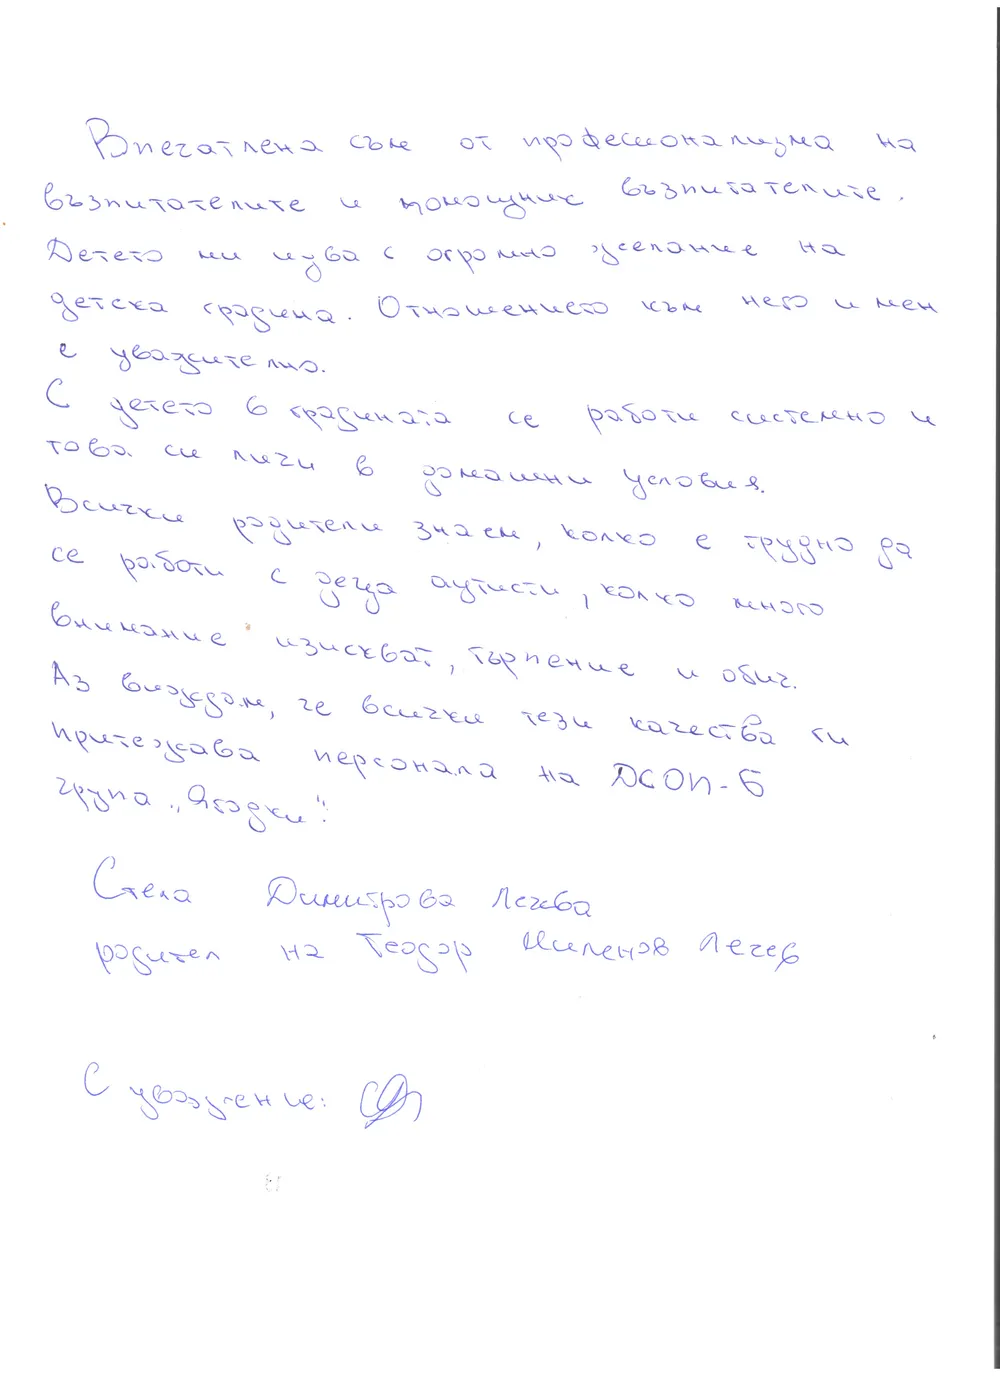 Впечатлена съм от професионализма на
възпитателите и помощник възпитателите.
Детето ми идва с огромно желание на
детска градина. Отношението към него и мен
е уважително.
С детето в градината се работи системно и
това си личи в домашни условия.
Всички родители знаем, колко е трудно да
се работи с деца аутисти, колко много
внимание изискват, търпение и обич.
Аз виждам, че всички тези качества ги
притежава персонала на ДСОП-Б
група „Ягодки".
Стела Димитрова Лечева
родител на Теодор Миленов Лечев
С уважение: